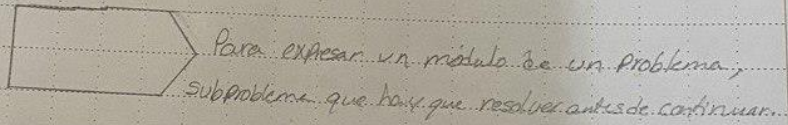 Para expresar un módulo de un problema,
subproblema que hay que resolver antes de continuar.